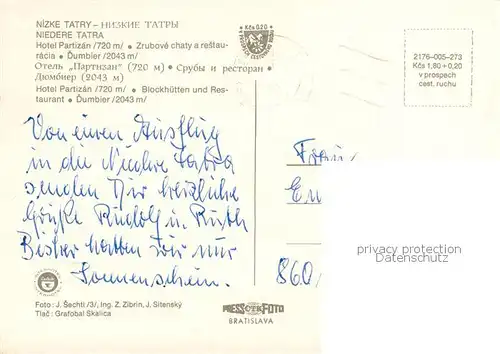 NÍZKE TATRY – НИЗКИЕ ТАТРЫ
NIEDERE TATRA
Hotel Partizán /720 m/ • Zrubové chaty a reštau-
rácia • Ďumbier /2043 m/
Отель „Партизан" (720 м) • Срубы и ресторан •
Дюмбиер (2043 м)
Hotel Partizán /720 m/ • Blockhütten und Res-
taurant • Ďumbier /2043 m/
Kčs 0,20
2176-005-273
Kčs 1,80 + 0,20
v prospech
cest. ruchu
Von einem Ausflug
in die Niedere Tatra
senden Dir herzliche
Grüße Rudolf u. Ruth
Bisher hatten wir nur
Sonnenschein.
Frau
En
860
privacy protection
Datenschutz
Foto: J. Šechtl /3/, Ing. Z. Zibrin, J. Sitenský
Tlač: Grafobal Skalica
PRESSFOTO
BRATISLAVA